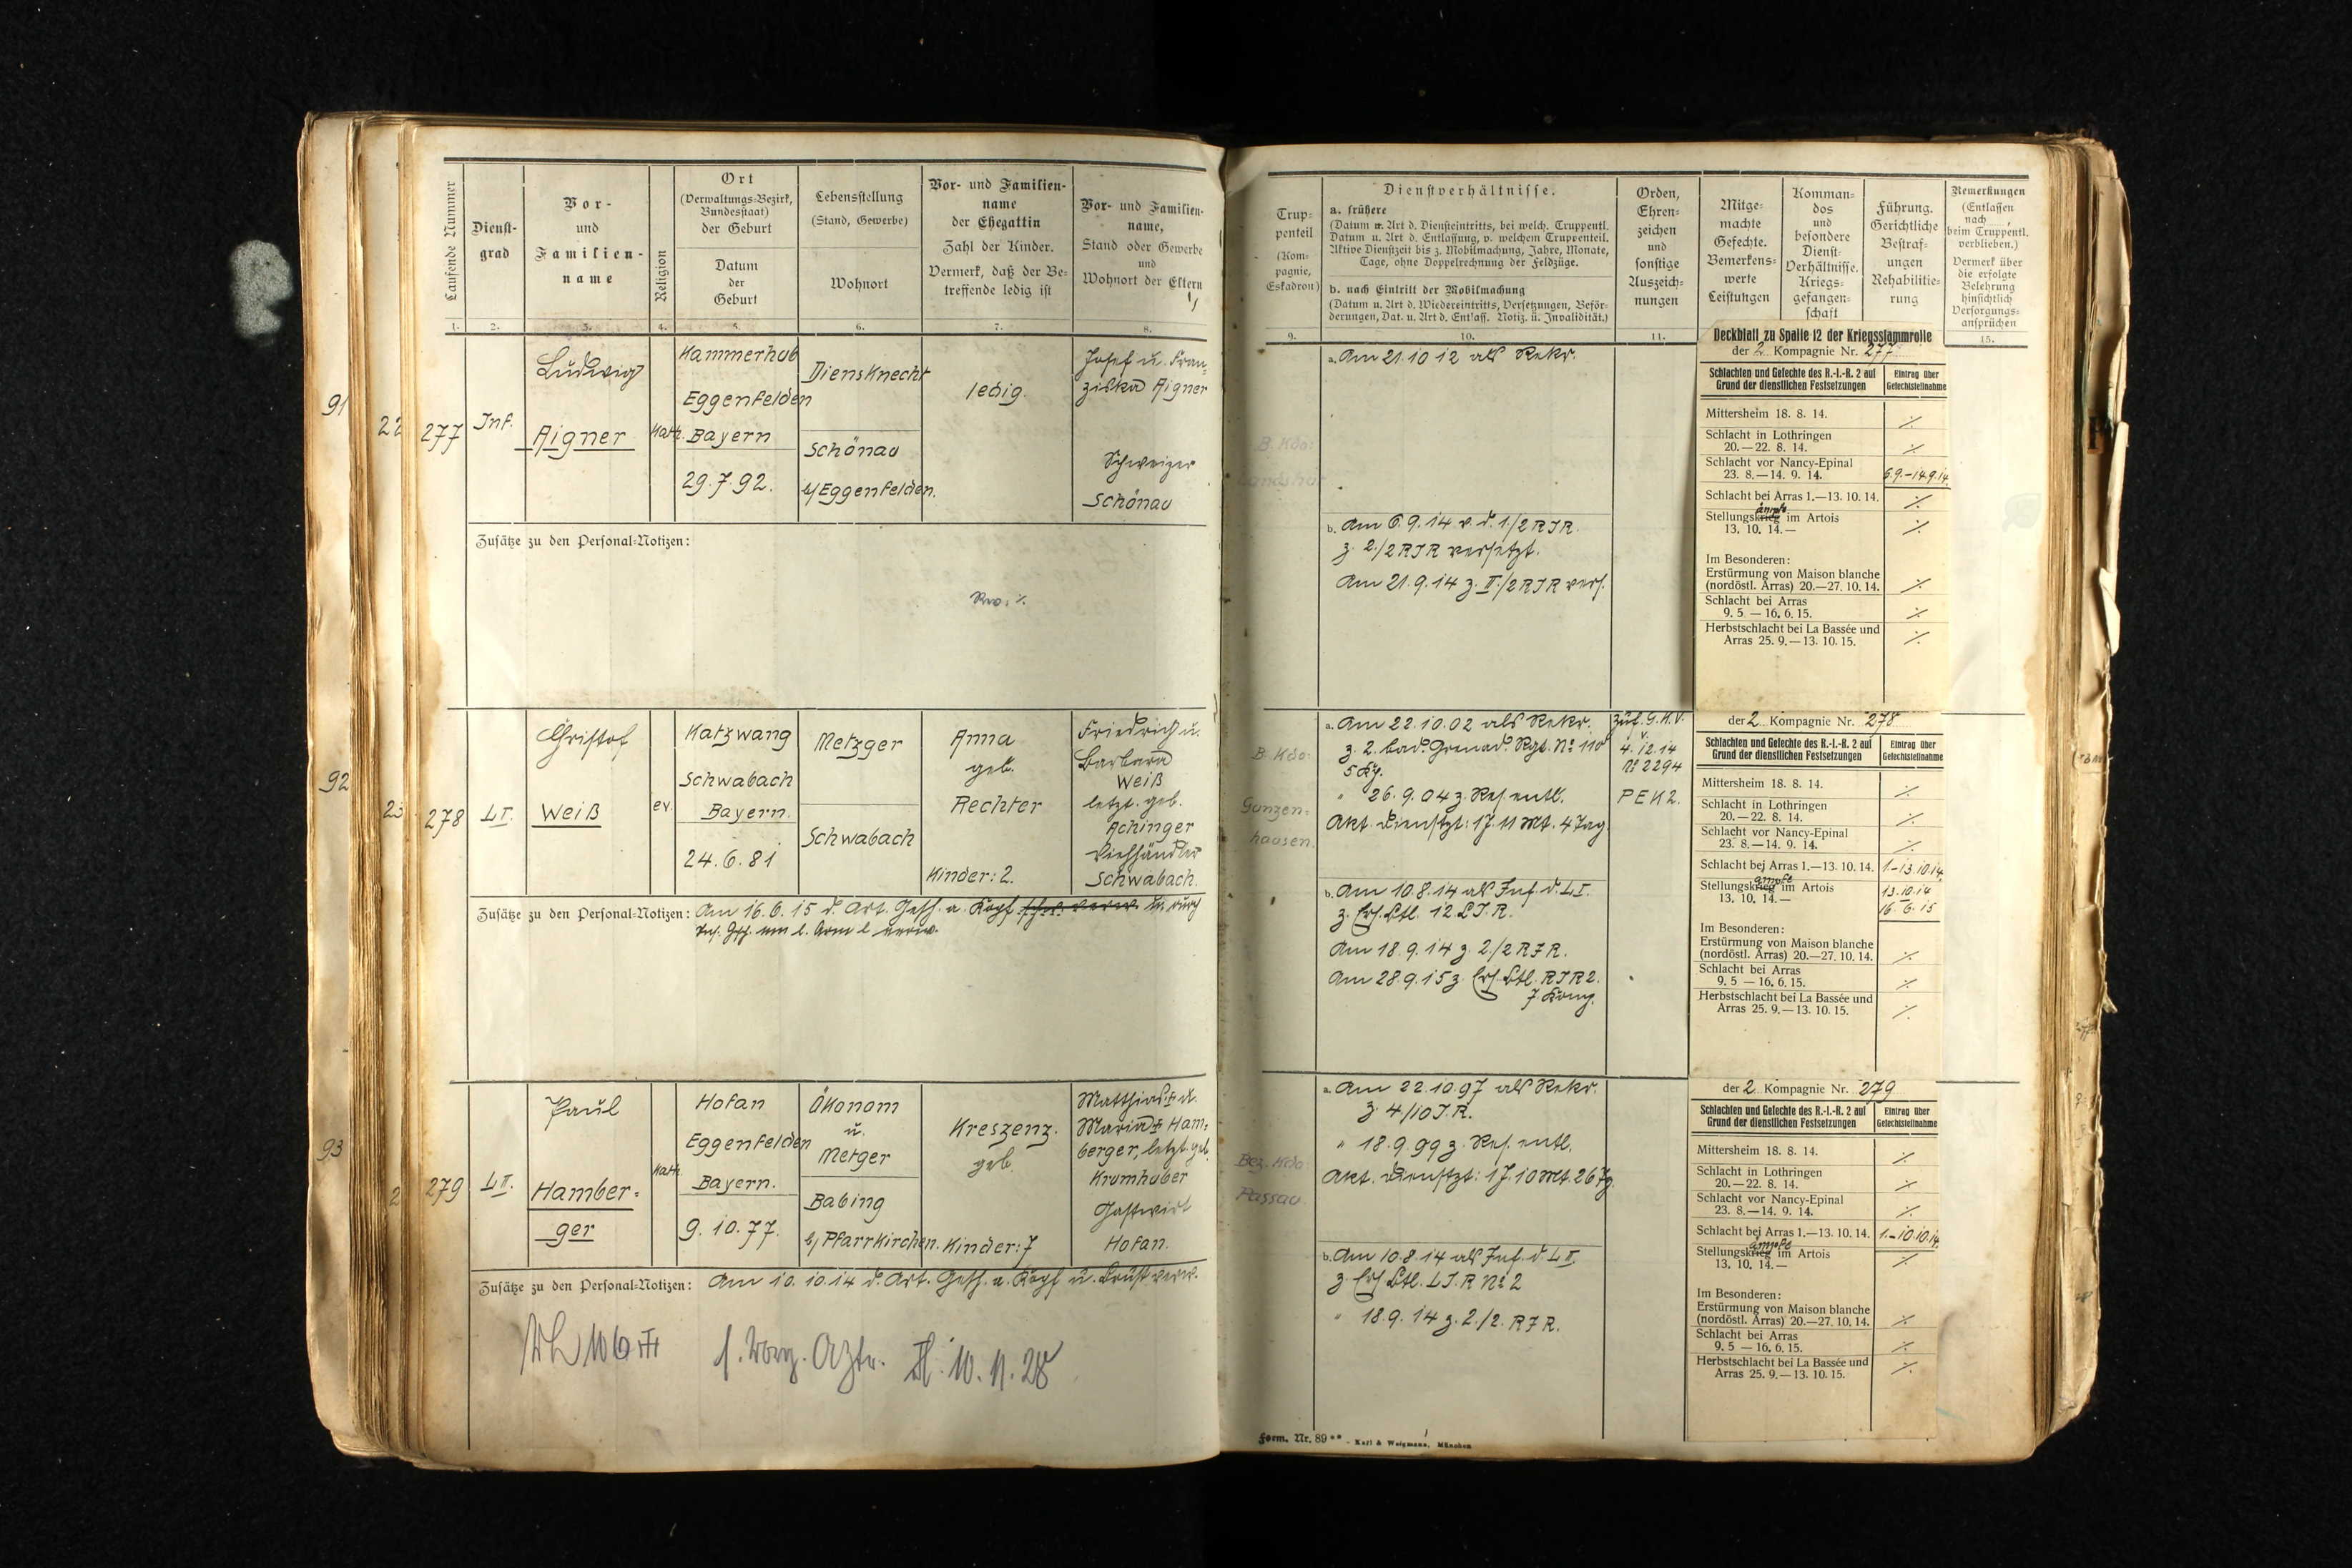 Laufende Nummer
Dienst-
grad
Vor-
und
Familien-
name
Religion
Ort
(Verwaltungs-Bezirk,
Bundesstaat)
der Geburt
Datum
der
Geburt
Lebensstellung
(Stand, Gewerbe)
Wohnort
Vor- und Familien-
name
der Ehegattin
Zahl der Kinder.
Vermerk, daß der Be-
treffende ledig ist
Vor- und Familien-
name,
Stand oder Gewerbe
und
Wohnort der Eltern
1. 2. 3. 4. 5. 6. 7. 8.
91
22
277
Inf.
Ludwig
Aigner
Kath.
Hammerhub
Eggenfelden
Bayern
29.7.92.
Diensknecht
Schönau
b/Eggenfelden.
ledig.
Josef u. Fran-
ziska Aigner
Schweizer
Schönau
Zusätze zu den Personal-Notizen:
92
23
278
L I.
Christof
Weiß
ev.
Katzwang
Schwabach
Bayern.
24.6.81
Metzger
Schwabach
Anna
geb.
Rechter
Kinder: 2.
Friedrich u.
Barbara
Weiß
letzt. geb.
Achinger
Viehhändler
Schwabach.
Zusätze zu den Personal-Notizen: Am 16.6.15 d. Art. Gesch. a. Kopf schw. verw. u. durch
Inf. Gesch. am l. Arm l. verw.
93
2
279
L II.
Paul
Hamber-
ger
Kath.
Hofan
Eggenfelden
Bayern.
9.10.77.
Ökonom
u.
Metger
Babing
b/Pfarrkirchen.
Kreszenz.
geb.
Kinder: 7
Matthias † u.
Maria † Ham-
berger, letzt. geb.
Krumhuber
Gastwirt
Hofan.
Zusätze zu den Personal-Notizen: Am 10.10.14 d. Art. Gesch. a. Kopf u. Brust verw.
10.11.28
Trup-
penteil
(Kom-
pagnie,
Eskadron)
Dienstverhältnisse.
a. frühere
(Datum u. Art d. Diensteintritts, bei welch. Truppentl.
Datum u. Art d. Entlassung, v. welchem Truppenteil.
Aktive Dienstzeit bis z. Mobilmachung, Jahre, Monate,
Tage, ohne Doppelrechnung der Feldzüge.
b. nach Eintritt der Mobilmachung
(Datum u. Art d. Wiedereintritts, Versetzungen, Beför-
derungen, Dat. u. Art d. Entlass. Notiz. ü. Invalidität.)
Orden,
Ehren-
zeichen
und
sonstige
Auszeich-
nungen
Mitge-
machte
Gefechte.
Bemerkens-
werte
Leistungen
Komman-
dos
und
besondere
Dienst-
Verhältnisse.
Kriegs-
gefangen-
schaft
Führung.
Gerichtliche
Bestraf-
ungen
Rehabilitie-
rung
Bemerkungen
(Entlassen
nach
beim Truppentl.
verblieben.)
Vermerk über
die erfolgte
Belehrung
hinsichtlich
Versorgungs-
ansprüchen
9. 10. 11. 15.
B. Kdo:
Landshut
a. Am 21.10 12 als Rekr.
b. Am 6.9.14 v. d. 1./2 RIR.
z. 2./2 RIR versetzt.
Am 21.9.14 z. II./2 RIR vers.
Deckblatt zu Spalte 12 der Kriegsstammrolle
der 2 Kompagnie Nr. 277
Schlachten und Gefechte des R.-I.-R. 2 auf
Grund der dienstlichen Festsetzungen
Eintrag über
Gefechtsteilnahme
Mittersheim 18. 8. 14. ·/.
Schlacht in Lothringen
20.—22. 8. 14. ·/.
Schlacht vor Nancy-Epinal
23. 8.—14. 9. 14. 6.9.-14.9.14.
Schlacht bei Arras 1.—13. 10. 14. ·/.
Stellungskrieg im Artois
13. 10. 14.— ·/.
Im Besonderen:
Erstürmung von Maison blanche
(nordöstl. Arras) 20.—27. 10. 14. ·/.
Schlacht bei Arras
9. 5 — 16. 6. 15. ·/.
Herbstschlacht bei La Bassée und
Arras 25. 9.—13. 10. 15. ·/.
B. Kdo:
Gunzen-
hausen.
a. Am 22.10.02 als Rekr.
z. 2. bad. Grenad. Rgt. No 110
" 26.9.04 z. Res. entl.
Akt. Dienstzt: 1 J. 11 Mt. 4 Tag.
b. Am 10.8.14 als Inf. d. L I.
z. Ers. Btl. 12 L.I.R.
Am 18.9.14 z. 2/2 RIR.
Am 28.9.15 z. Ers. Btl. RIR 2.
7. Komp.
v.
4.12.14
No 2294
PEK 2.
der 2 Kompagnie Nr. 278
Schlachten und Gefechte des R.-I.-R. 2 auf
Grund der dienstlichen Festsetzungen
Eintrag über
Gefechtsteilnahme
Mittersheim 18. 8. 14. ·/.
Schlacht in Lothringen
20.—22. 8. 14. ·/.
Schlacht vor Nancy-Epinal
23. 8.—14. 9. 14. ·/.
Schlacht bei Arras 1.—13. 10. 14. 1.-13.10.14.
Stellungskrieg im Artois
13. 10. 14.— 13.10.14
16.6.15
Im Besonderen:
Erstürmung von Maison blanche
(nordöstl. Arras) 20.—27. 10. 14. ·/.
Schlacht bei Arras
9. 5 — 16. 6. 15. ·/.
Herbstschlacht bei La Bassée und
Arras 25. 9.—13. 10. 15. ·/.
Bez. Kdo
Passau
a. Am 22.10.97 als Rekr.
z. 4/10 I.R.
" 18.9.99 z. Res. entl.
Akt. Dienstzt: 1 J. 10 Mt. 26 Tg.
b. Am 10.8.14 als Inf. d. L II.
z. Ers. Btl. L.I.R No 2
" 18.9.14 z. 2./2. RIR.
der 2 Kompagnie Nr. 279
Schlachten und Gefechte des R.-I.-R. 2 auf
Grund der dienstlichen Festsetzungen
Eintrag über
Gefechtsteilnahme
Mittersheim 18. 8. 14. ·/.
Schlacht in Lothringen
20.—22. 8. 14. ·/.
Schlacht vor Nancy-Epinal
23. 8.—14. 9. 14. ·/.
Schlacht bei Arras 1.—13. 10. 14. 1.-10.10.14.
Stellungskrieg im Artois
13. 10. 14.— ·/.
Im Besonderen:
Erstürmung von Maison blanche
(nordöstl. Arras) 20.—27. 10. 14. ·/.
Schlacht bei Arras
9. 5 — 16. 6. 15. ·/.
Herbstschlacht bei La Bassée und
Arras 25. 9.—13. 10. 15. ·/.
Form. Nr. 89 ** - Karl & Weigmann, München